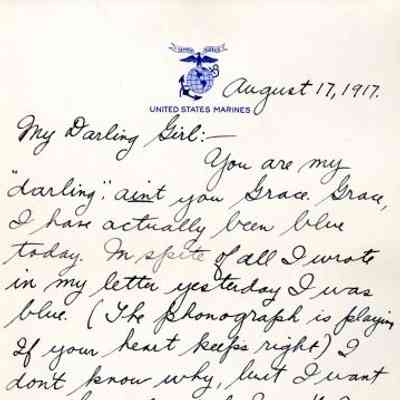 August 17, 1917.
UNITED STATES MARINES
My Darling Girl:—
You are my
"darling", aint you Grace. Grace,
I have actually been blue
today. In spite of all I wrote
in my letter yesterday I was
blue. (The phonograph is playing
If your heart keeps right) I
don't know why, but I want